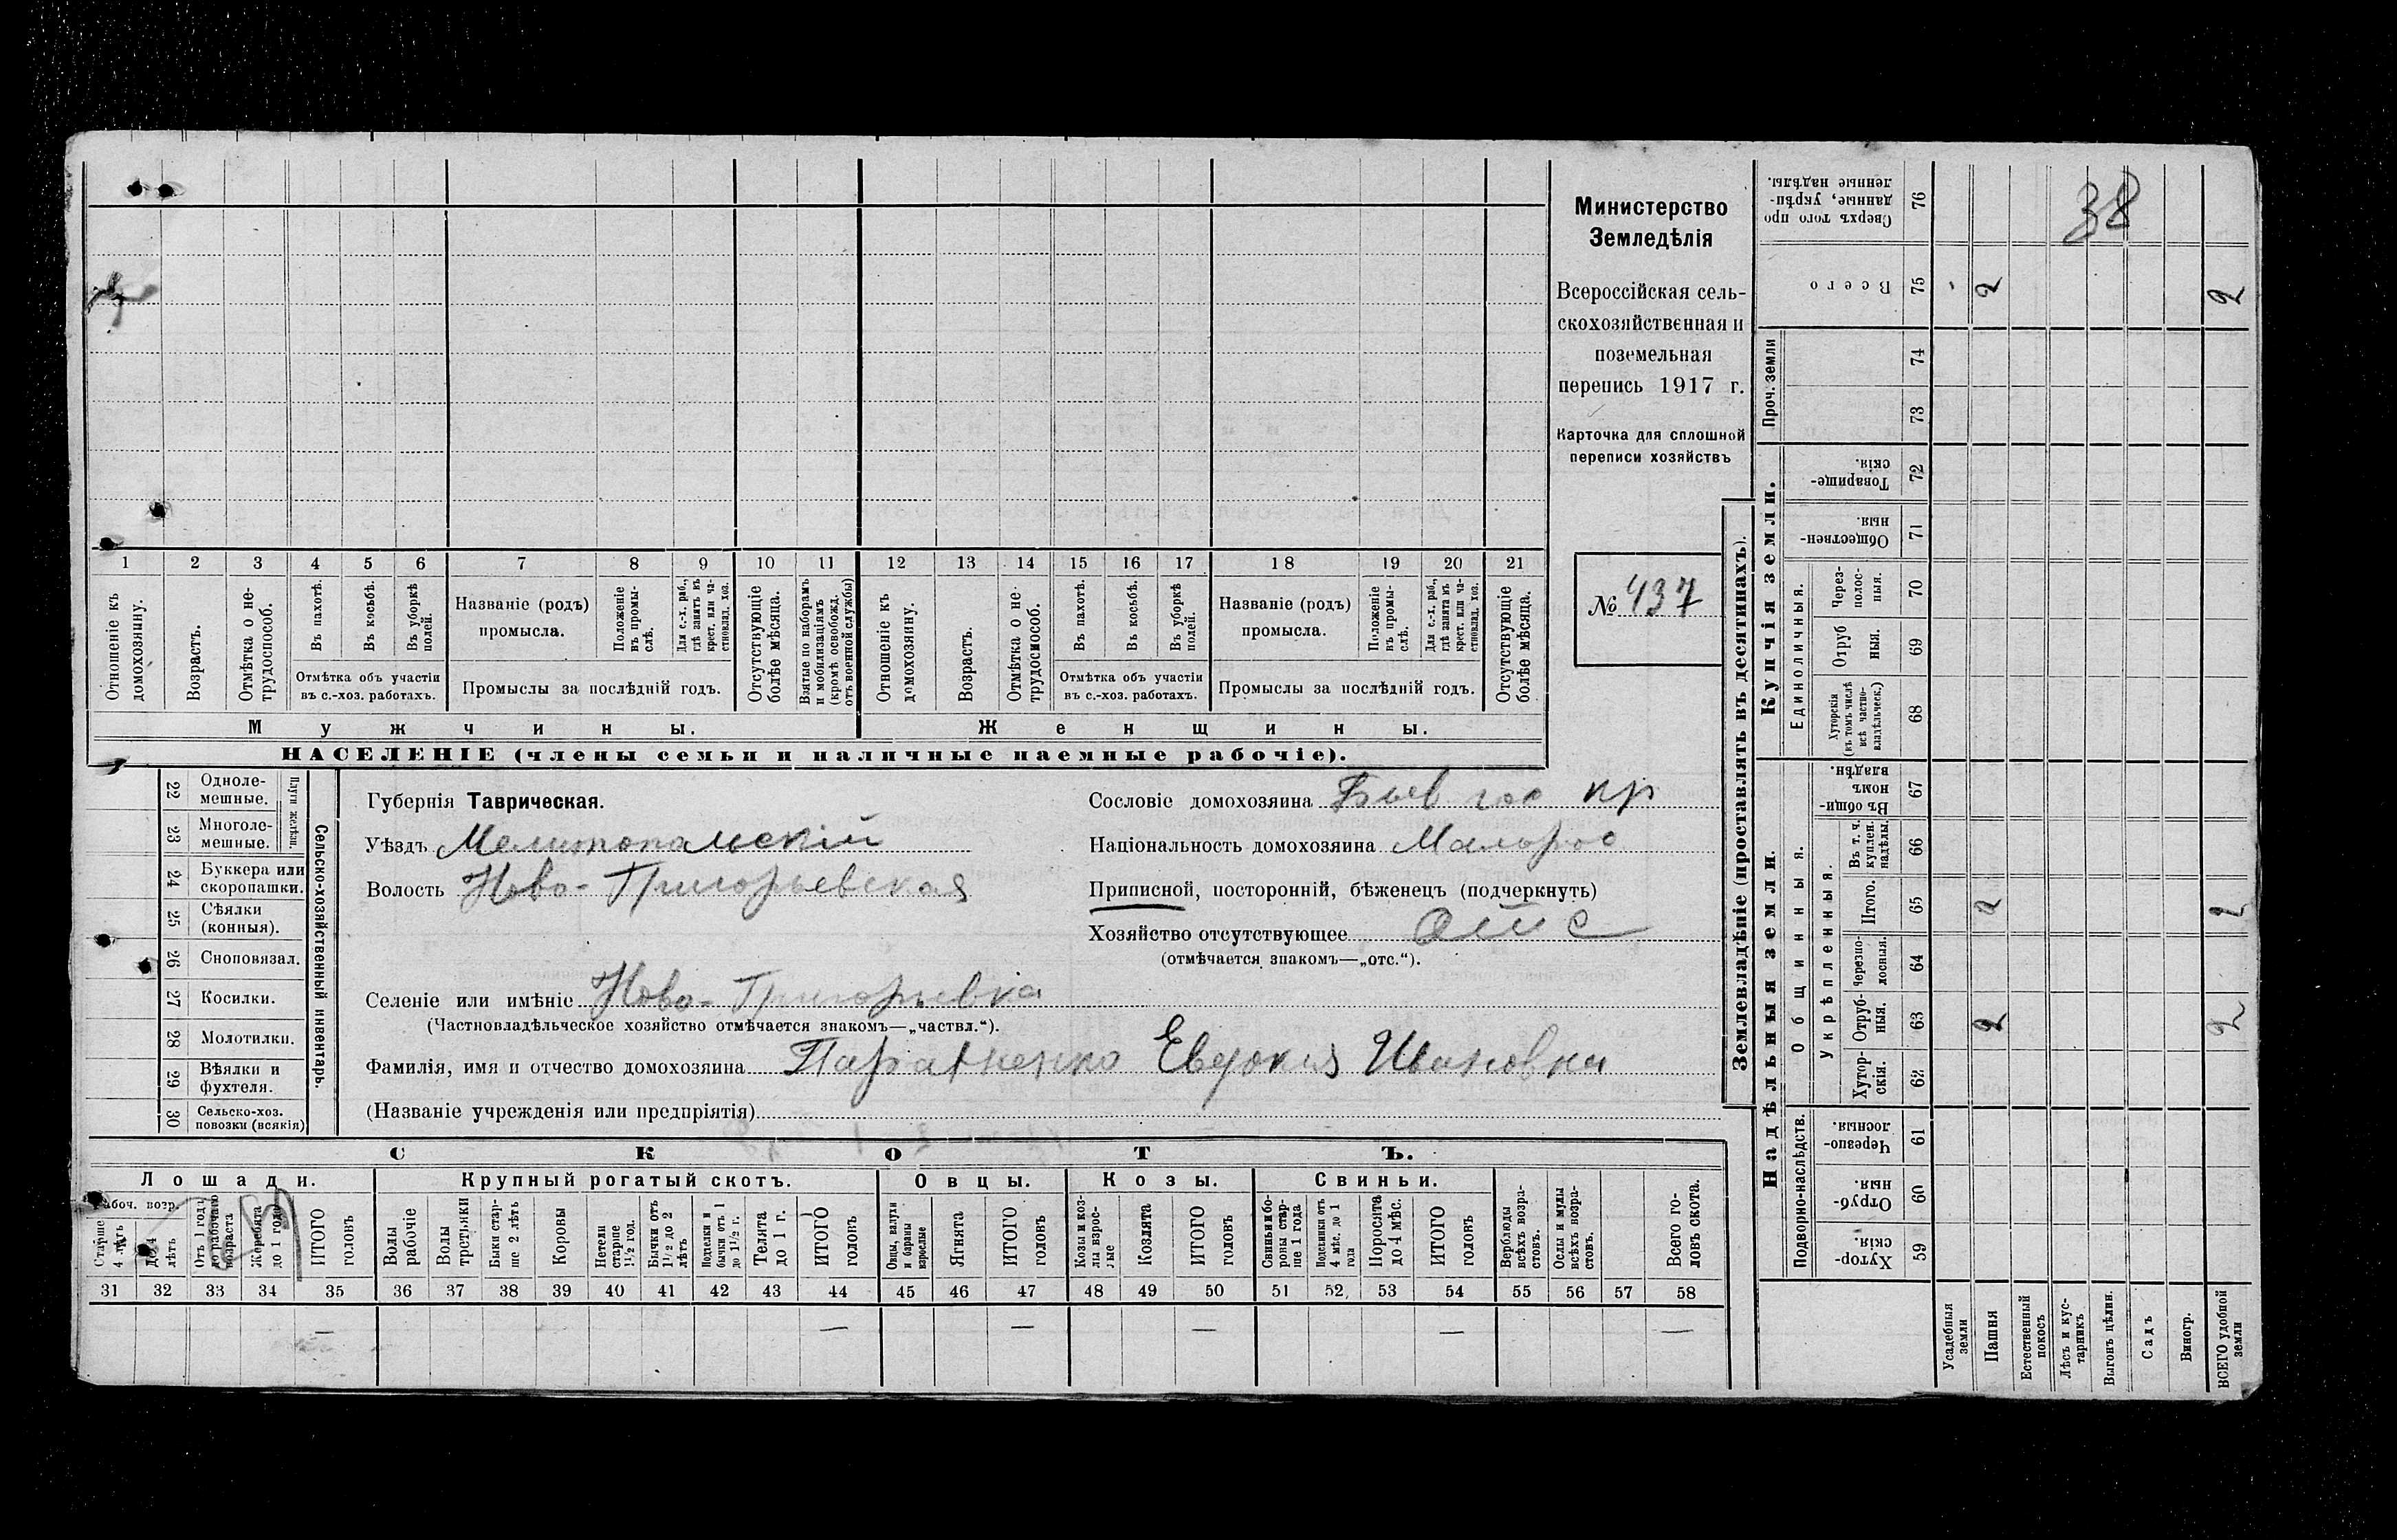 Министерство
Земледѣлія
Всероссійская сель-
скохозяйственная и
поземельная
перепись 1917 г.
Карточка для сплошной
переписи хозяйствъ
№ 437
1 2 3 4 5 6 7 8 9 10 11 12 13 14 15 16 17 18 19 20 21
Отношеніе къ домохозяину.
Возрастъ.
Отмѣтка о не-трудоспособ.
Въ пахотѣ.
Въ косьбѣ.
Въ уборкѣ полей.
Отмѣтка объ участіи
въ с.-хоз. работахъ.
Названіе (родъ)
промысла.
Положеніе въ промы-слѣ.
Для с.-х. раб., гдѣ занятъ въ крест. или ча-стновлад. хоз.
Промыслы за послѣдній годъ.
Отсутствующіе болѣе мѣсяца.
Взятые по наборамъ и мобилизаціямъ (кромѣ освобожд. отъ военной службы)
Отношеніе къ домохозяину.
Возрастъ.
Отмѣтка о не-трудоспособ.
Въ пахотѣ.
Въ косьбѣ.
Въ уборкѣ полей.
Отмѣтка объ участіи
въ с.-хоз. работахъ.
Названіе (родъ)
промысла.
Положеніе въ промы-слѣ.
Для с.-х. раб., гдѣ занята въ крест. или ча-стновлад. хоз.
Промыслы за послѣдній годъ.
Отсутствующіе болѣе мѣсяца.
Мужчины.
Женщины.
НАСЕЛЕНІЕ (члены семьи и наличные наемные рабочіе).
Сельско-хозяйственный инвентарь.
Плуги желѣзн.
22 Одноле-мешные.
23 Многоле-мешные.
24 Буккера или скоропашки.
25 Сѣялки (конныя).
26 Сноповязал.
27 Косилки.
28 Молотилки.
29 Вѣялки и фухтеля.
30 Сельско-хоз. повозки (всякія)
Губернія Таврическая.
Уѣздъ Мелитопольскій
Волость Ново-Григорьевская
Селеніе или имѣніе Ново-Григорьевка
(Частновладѣльческое хозяйство отмѣчается знакомъ—„частвл.“).
Фамилія, имя и отчество домохозяина Евдокия Ивановна
(Названіе учрежденія или предпріятія)
Сословіе домохозяина кр
Національность домохозяина Малорос
Приписной, посторонній, бѣженецъ (подчеркнуть)
Хозяйство отсутствующее отс
(отмѣчается знакомъ—„отс.“).
СКОТЪ.
Лошади.
Рабоч. возр.
Старше 4 лѣтъ
До 4 лѣтъ
Отъ 1 года до рабочаго возраста
Жеребята до 1 года
ИТОГО головъ
Крупный рогатый скотъ.
Волы рабочіе
Волы третьяки
Быки стар-ше 2 лѣтъ
Коровы
Нетели старше 1½ год.
Бычки отъ 1½ до 2 лѣтъ
бычки отъ 1 до 1½ г.
Телята до 1 г.
ИТОГО головъ
Овцы.
Овцы, валухи и бараны взрослые
Ягнята
ИТОГО головъ
Козы.
Козы и коз-лы взрос-лые
Козлята
ИТОГО головъ
Свиньи.
Свиньи и бо-ровы стар-ше 1 года
Подсвинки отъ 4 мѣс. до 1 года
Поросята до 4 мѣс.
ИТОГО головъ
Верблюды всѣхъ возра-стовъ.
Ослы и мулы всѣхъ возра-стовъ.
Всего го-ловъ скота.
31 32 33 34 35 36 37 38 39 40 41 42 43 44 45 46 47 48 49 50 51 52 53 54 55 56 57 58
— — — — — —
Землевладѣніе (проставлять въ десятинахъ).
Надѣльныя земли.
Купчія земли.
Проч. земли
Подворно-наслѣдств.
Общинныя.
Укрѣпленныя.
Единоличныя.
Сверхъ того про данные, укрѣп-ленные надѣлы. 76
38
Всего 75 2 2
74
73
Товарище-скія. 72
Обществен-ныя. 71
Через-полос-ныя. 70
Отруб ныя. 69
Хуторскія (въ томъ числѣ всѣ частно-владѣльческ.) 68
Въ общин-номъ владѣн. 67
Въ т. ч. куплен. надѣлы. 66
Итого. 65 2 2
Черезпо-лосныя. 64
Отруб-ныя. 63 2 2
Хутор-скія. 62
Черезпо-лосныя. 61
Отруб-ныя. 60
Хутор-скія. 59
Усадебныя земли
Пашня
Естественный покосъ
Лѣсъ и кус-тарникъ
Выгонъ цѣлин.
Садъ
Виногр.
ВСЕГО удобной земли